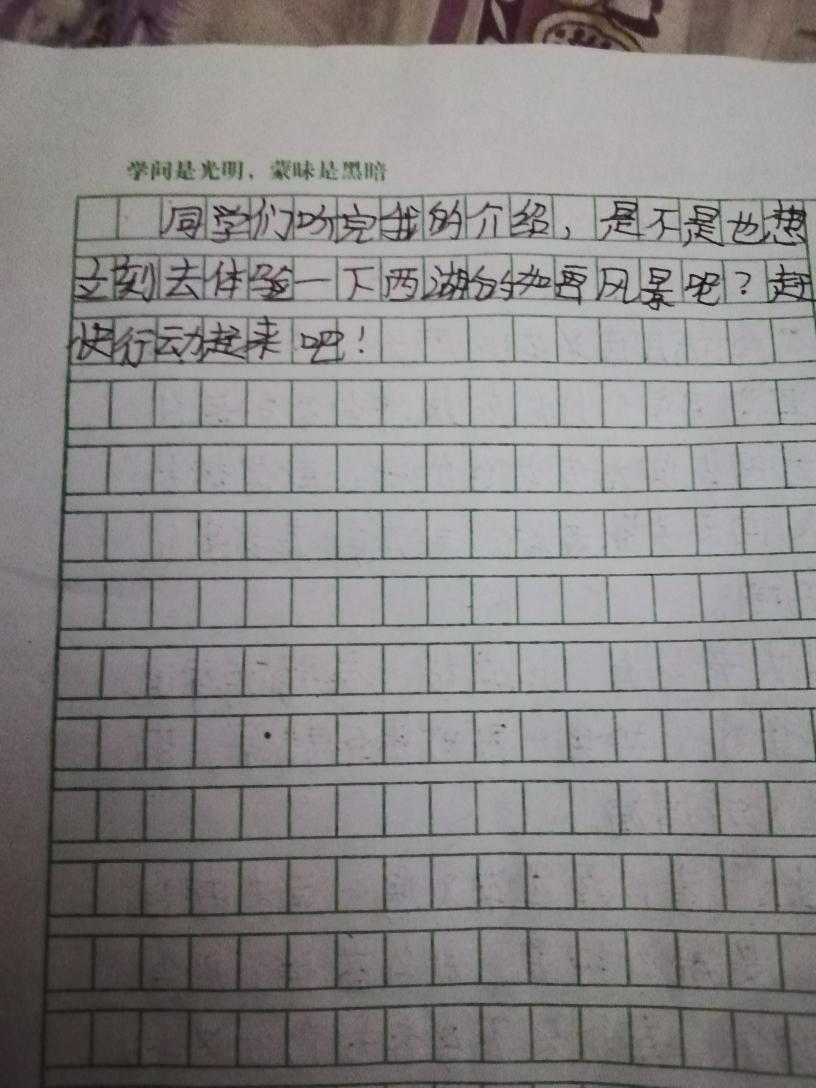 学问是光明，蒙昧是黑暗
同学们听完我的介绍，是不是也想
立刻去体验一下西湖的如画风景呢？赶
快行动起来吧！